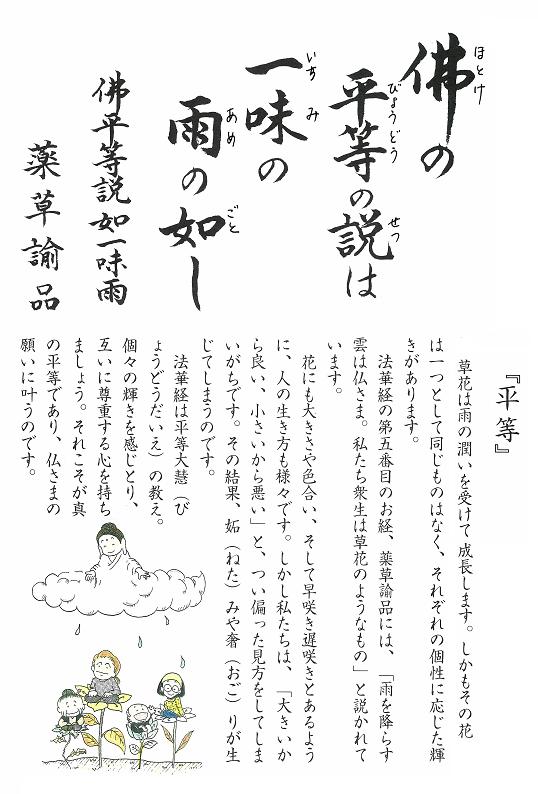 佛の
ほとけ
平等の説は
びょうどう
せつ
一味の
いちみ
雨の如し
あめ
ごと
佛平等説如一味雨
薬草諭品
『平等』
草花は雨の潤いを受けて成長します。しかもその花
は一つとして同じものはなく、それぞれの個性に応じた輝
きがあります。
法華経の第五番目のお経、薬草諭品には、「雨を降らす
雲は仏さま。私たち衆生は草花のようなもの」と説かれて
います。
花にも大きさや色合い、そして早咲き遅咲きとあるよう
に、人の生き方も様々です。しかし私たちは、「大きいか
ら良い、小さいから悪い」と、つい偏った見方をしてしま
いがちです。その結果、妬（ねた）みや奢（おご）りが生
じてしまうのです。
法華経は平等大慧（び
ょうどうだいえ）の教え。
個々の輝きを感じとり、
互いに尊重する心を持ち
ましょう。それこそが真
の平等であり、仏さまの
願いに叶うのです。